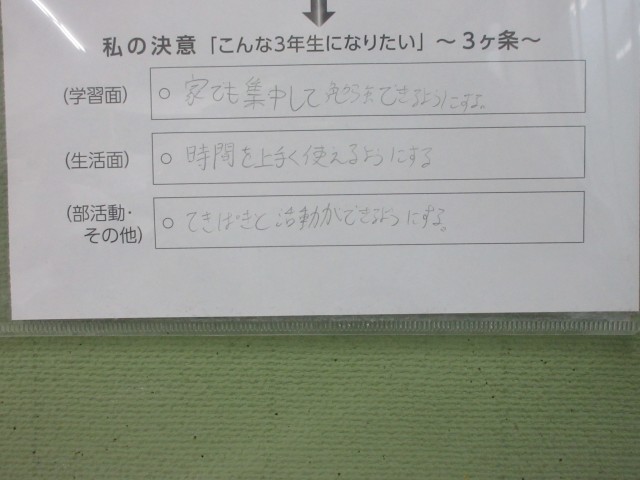 私の決意「こんな3年生になりたい」～3ヶ条～
(学習面) ○ 家でも集中して勉強をできるようにする。
(生活面) ○ 時間を上手く使えるようにする
(部活動・その他) ○ てきぱきと活動ができるようにする。